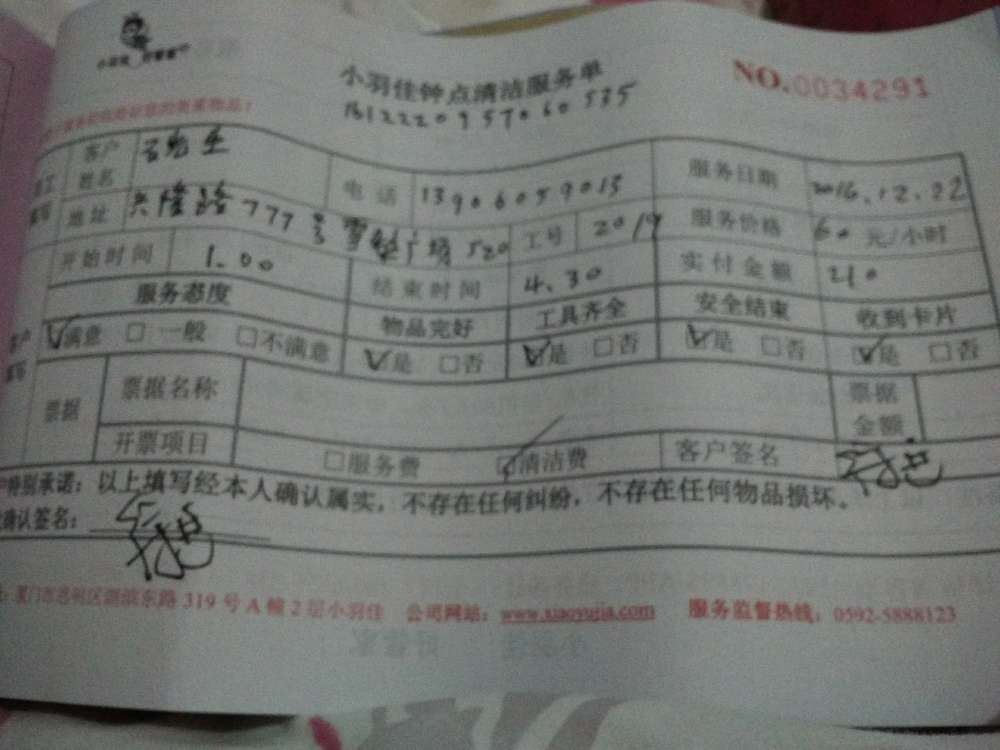 小羽佳 好管家
小羽佳钟点清洁服务单
NO.0034291
1612220957060535
客户姓名 电话 13906059013 服务日期 2016.12.22
地址 兴隆路777号 广场520 工号 2019 服务价格 60 元/小时
开始时间 1.00 结束时间 4.30 实付金额 210
服务态度 物品完好 工具齐全 安全结束 收到卡片
☑满意 □一般 □不满意 ☑是 □否 ☑是 □否 ☑是 □否 ☑是 □否
票据 票据名称 票据金额
开票项目 □服务费 ☑清洁费 客户签名
特别承诺：以上填写经本人确认属实，不存在任何纠纷，不存在任何物品损坏。
确认签名：
厦门市思明区湖滨东路319号A幢2层小羽佳 公司网站：www.xiaoyujia.com 服务监督热线：0592-5888123